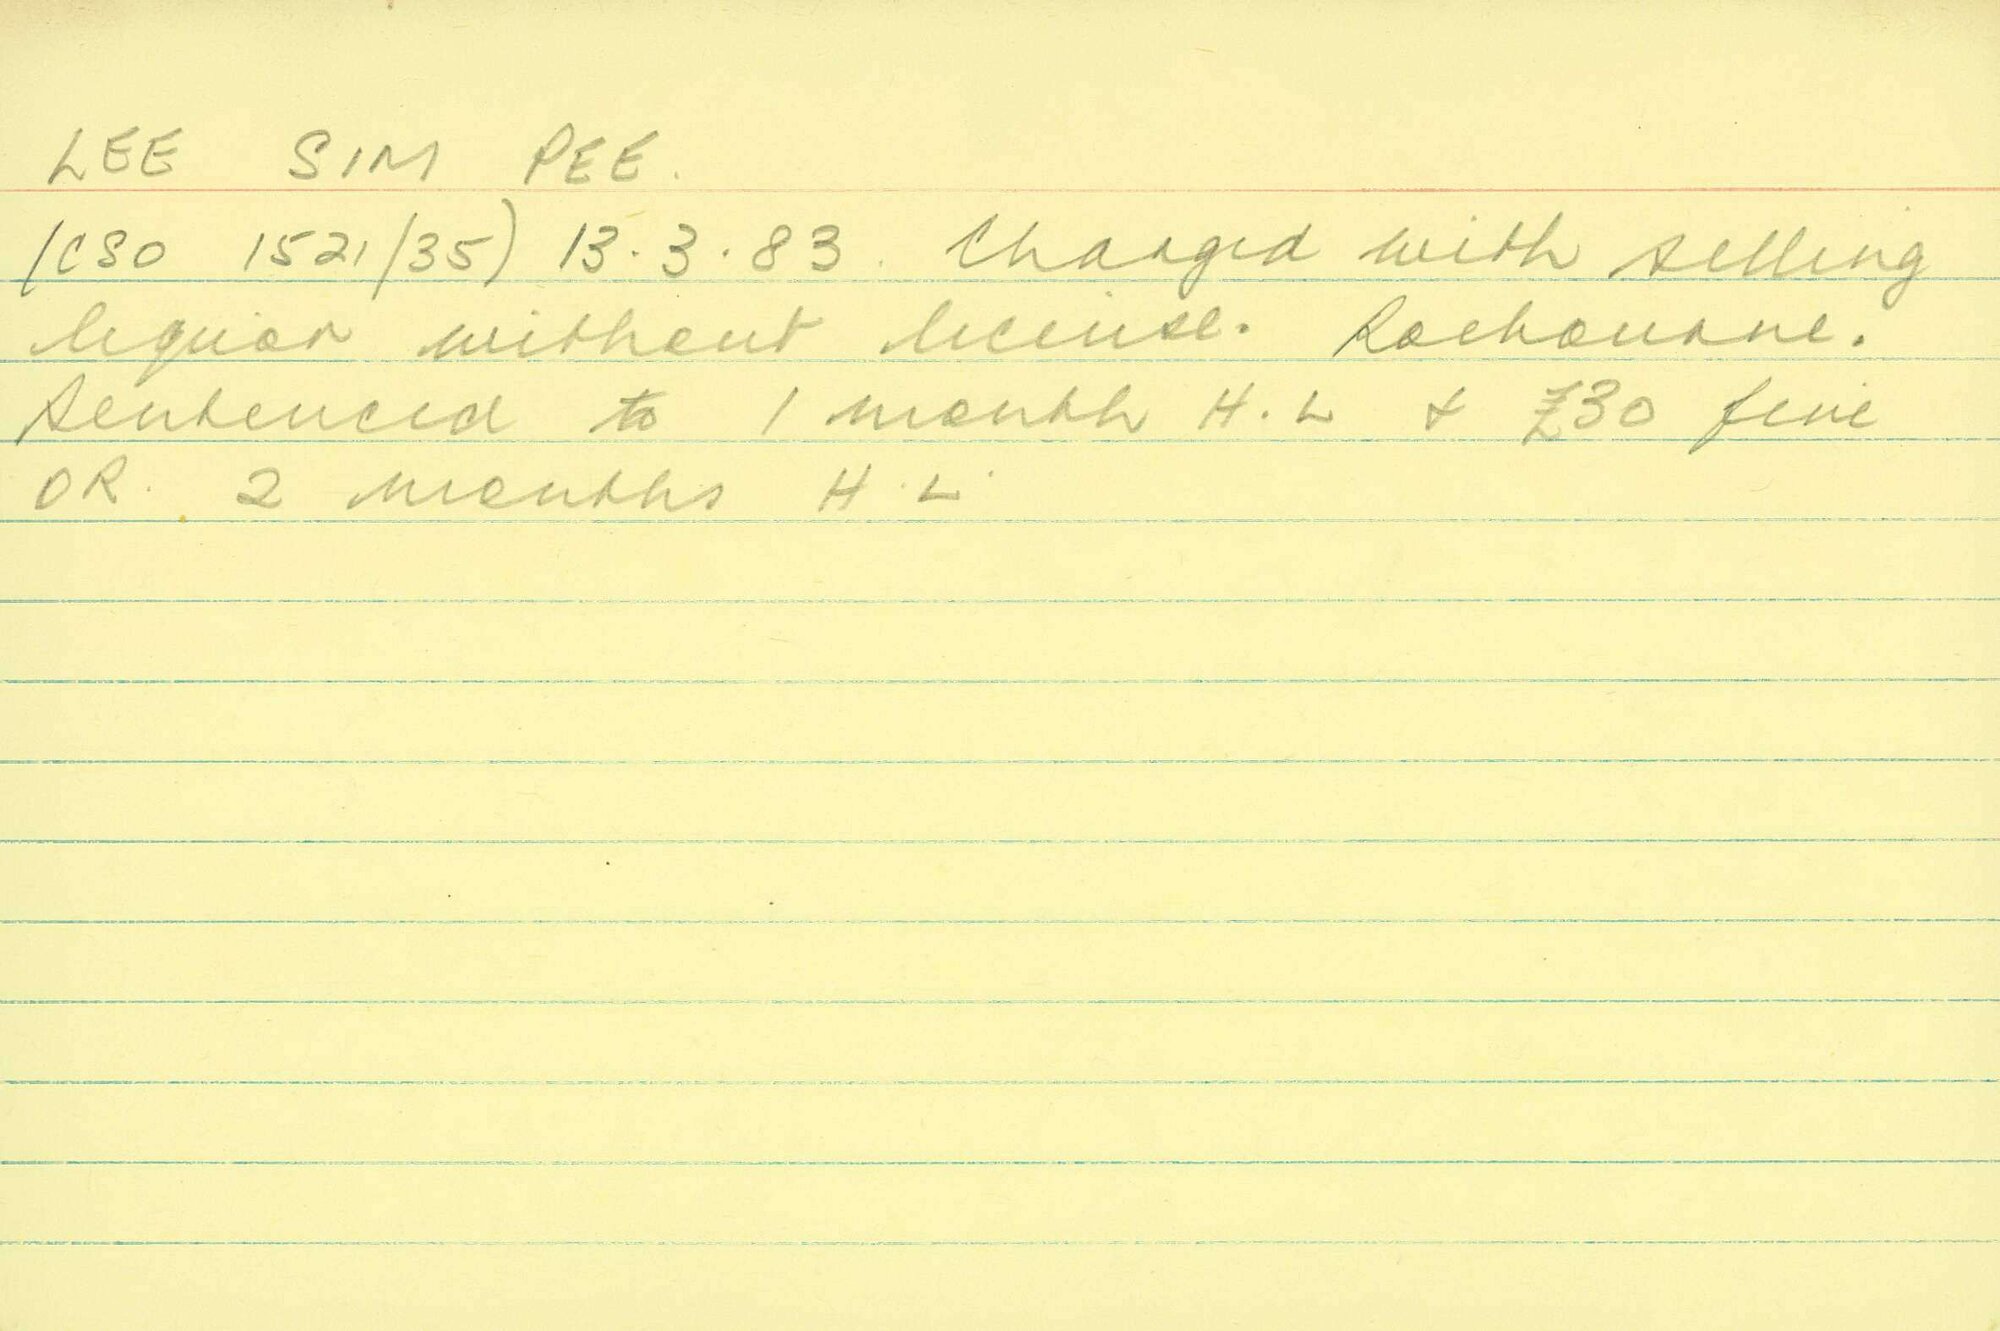 LEE SIM PEE.
(CSO 1521/35) 13.3.83. Charged with selling
liquor without license. Roebourne.
Sentenced to 1 month H.L & £30 fine
OR. 2 months H.L.